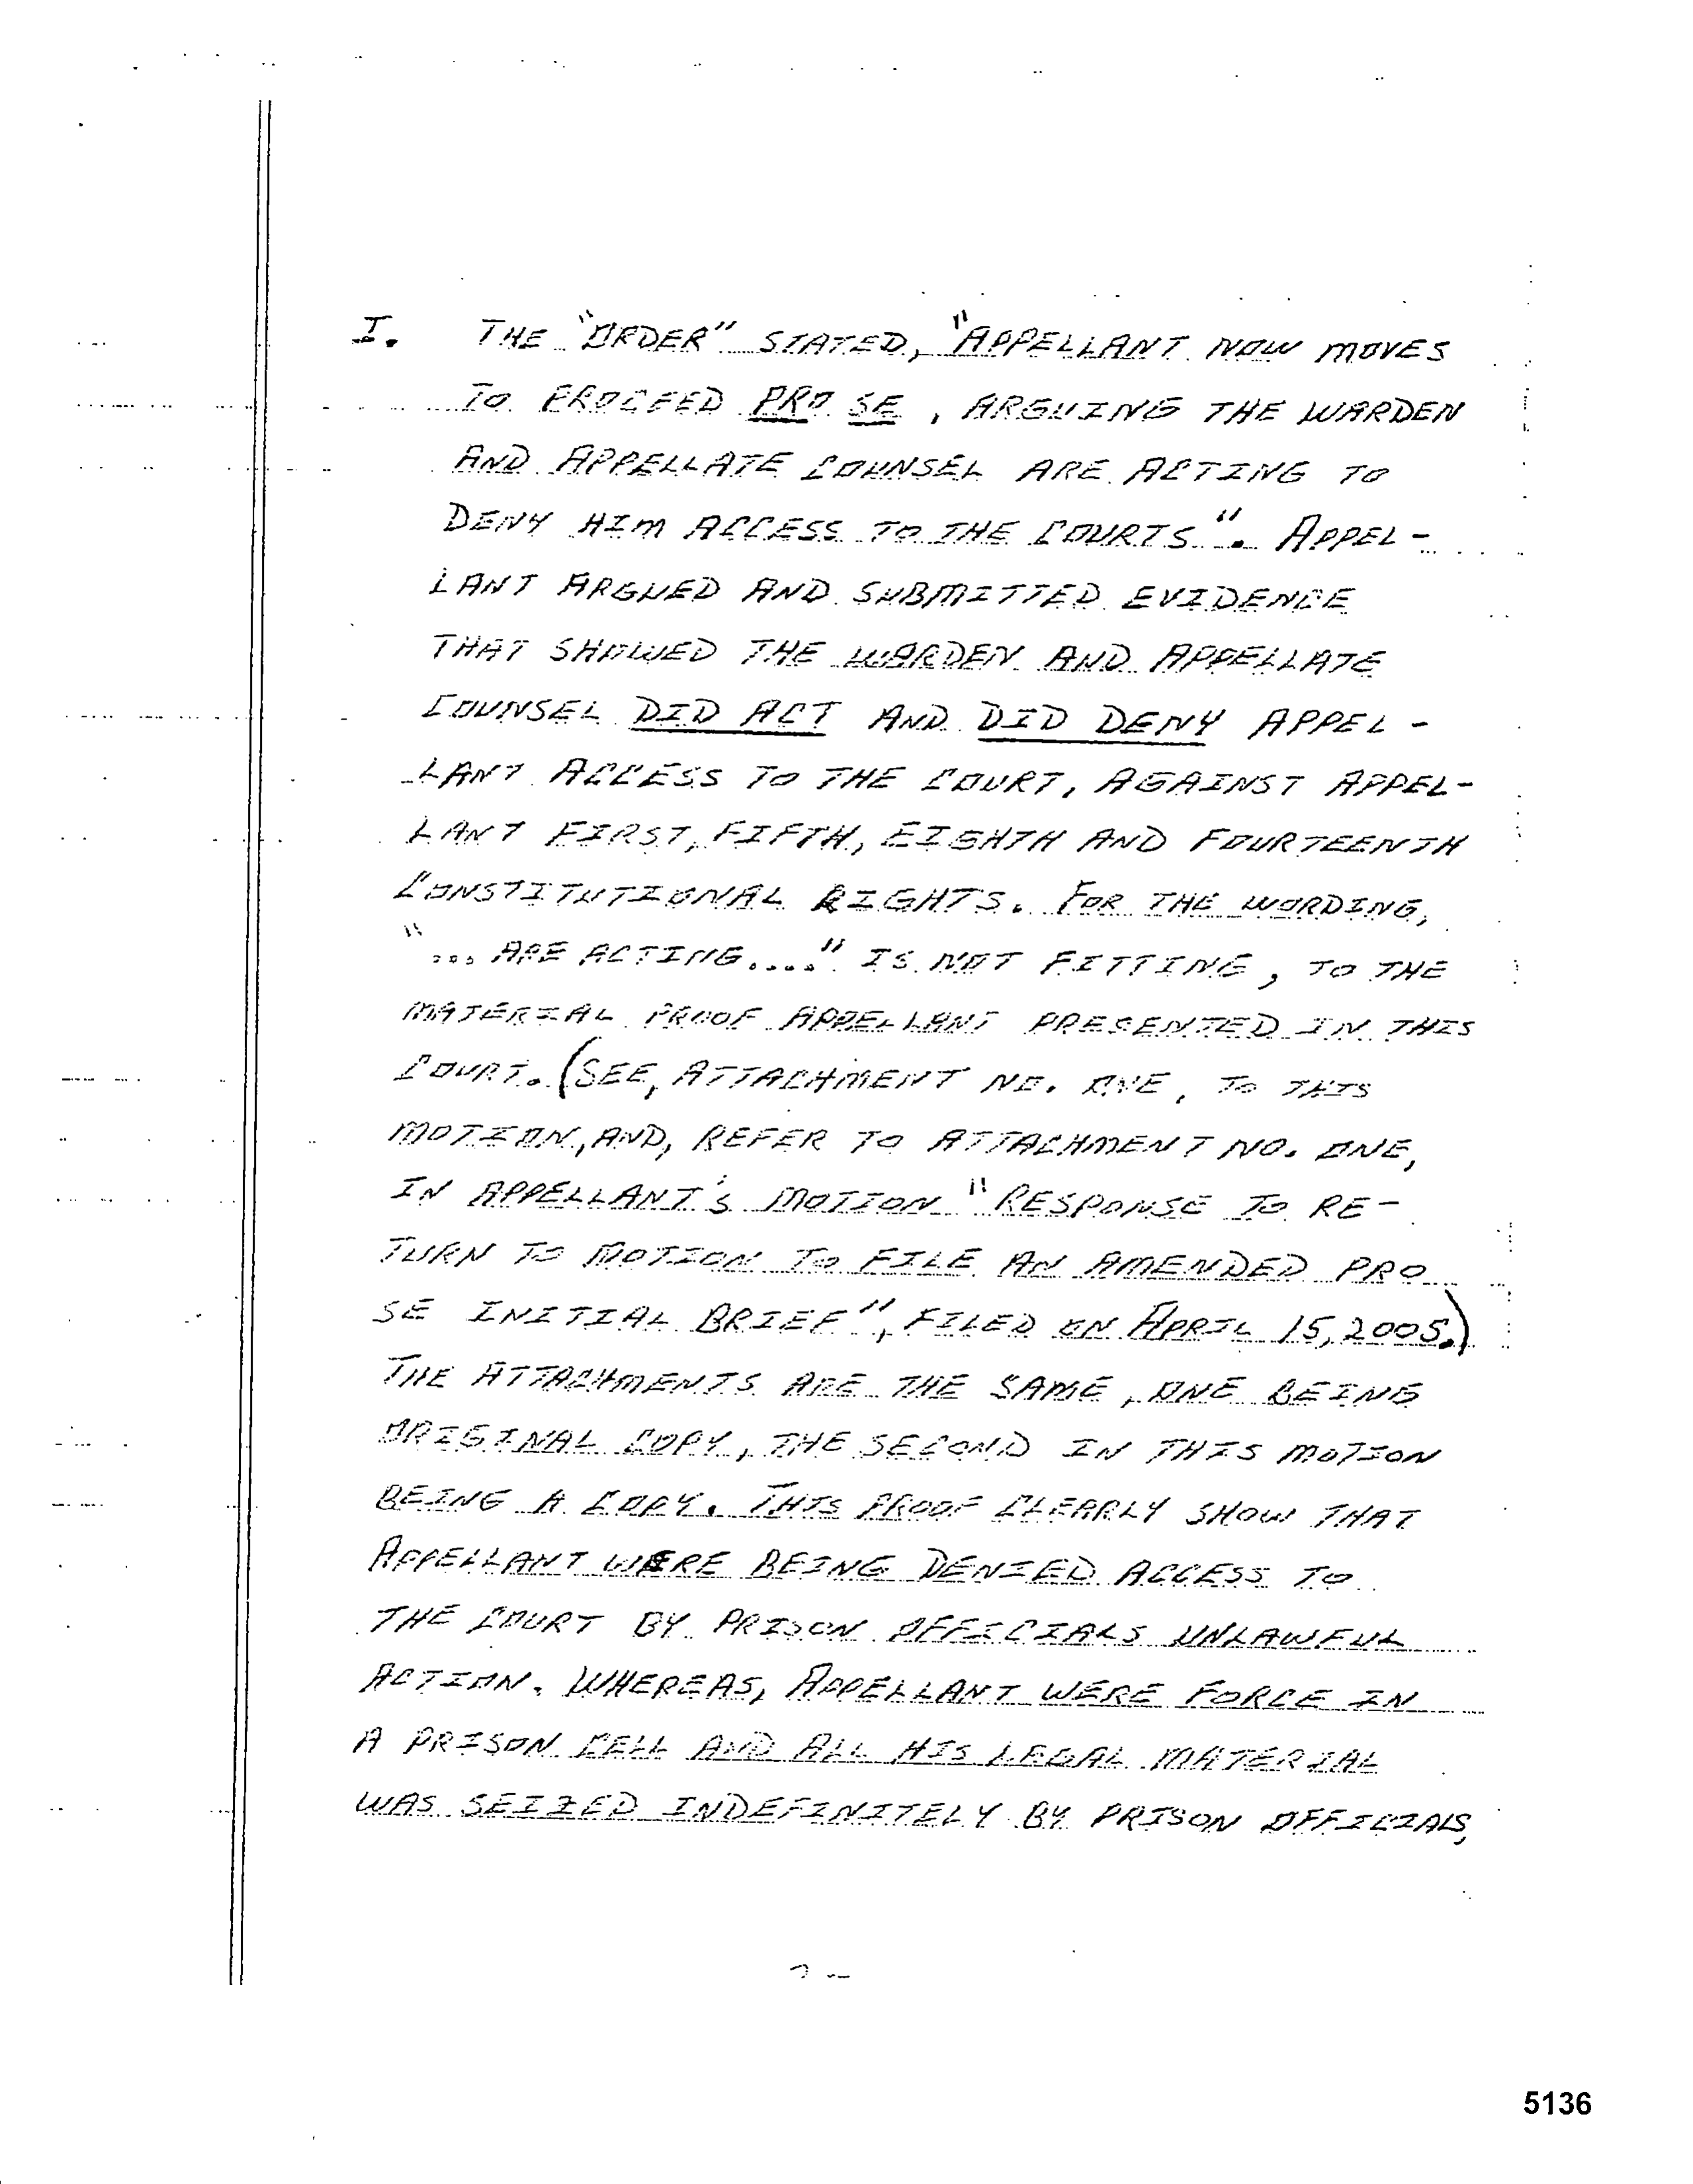 I. THE "ORDER" STATED, "APPELLANT NOW MOVES
TO PROCEED PRO SE, ARGUING THE WARDEN
AND APPELLATE COUNSEL ARE ACTING TO
DENY HIM ACCESS TO THE COURTS". APPEL-
LANT ARGUED AND SUBMITTED EVIDENCE
THAT SHOWED THE WARDEN AND APPELLATE
COUNSEL DID ACT AND DID DENY APPEL-
LANT ACCESS TO THE COURT, AGAINST APPEL-
LANT FIRST, FIFTH, EIGHTH AND FOURTEENTH
CONSTITUTIONAL RIGHTS. FOR THE WORDING,
"... ARE ACTING...." IS NOT FITTING, TO THE
MATERIAL PROOF APPELLANT PRESENTED IN THIS
COURT. (SEE, ATTACHMENT NO. ONE, TO THIS
MOTION, AND, REFER TO ATTACHMENT NO. ONE,
IN APPELLANT'S MOTION "RESPONSE TO RE-
TURN TO MOTION TO FILE AN AMENDED PRO
SE INITIAL BRIEF", FILED ON APRIL 15, 2005.)
THE ATTACHMENTS ARE THE SAME, ONE BEING
ORIGINAL COPY, THE SECOND IN THIS MOTION
BEING A COPY. THIS PROOF CLEARLY SHOW THAT
APPELLANT WERE BEING DENIED ACCESS TO
THE COURT BY PRISON OFFICIALS UNLAWFUL
ACTION. WHEREAS, APPELLANT WERE FORCE IN
A PRISON CELL AND ALL HIS LEGAL MATERIAL
WAS SEIZED INDEFINITELY BY PRISON OFFICIALS,
5136